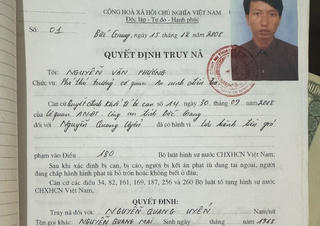 CỘNG HOÀ XÃ HỘI CHỦ NGHĨA VIỆT NAM
Độc lập - Tự do - Hạnh phúc
Số: 01
Bắc Giang, ngày 15 tháng 12 năm 2008
QUYẾT ĐỊNH TRUY NÃ
Tôi: NGUYỄN VĂN PHƯƠNG
Chức vụ: Phó Thủ trưởng cơ quan An ninh điều tra
Căn cứ Quyết định khởi tố bị can số 14 ngày 30 tháng 07 năm 2008
của Cơ quan ANĐT Công an tỉnh Bắc Giang
đối với Nguyễn Quang Uyển đã có hành vi Lưu hành tiền giả
phạm vào Điều 180 Bộ luật hình sự nước CHXHCN Việt Nam;
Sau khi xác định bị can, bị cáo, người bị kết án phạt tù đang tại ngoại, người đang
chấp hành hình phạt tù bỏ trốn hoặc không biết ở đâu;
Căn cứ các điều 34, 82, 161, 169, 187, 256 và 260 Bộ luật tố tụng hình sự nước
CHXHCN Việt Nam;
QUYẾT ĐỊNH:
Truy nã đối với: NGUYỄN QUANG UYỂN Nam/nữ
Tên gọi khác: NGUYỄN QUANG MAI Sinh ngày tháng năm 1968